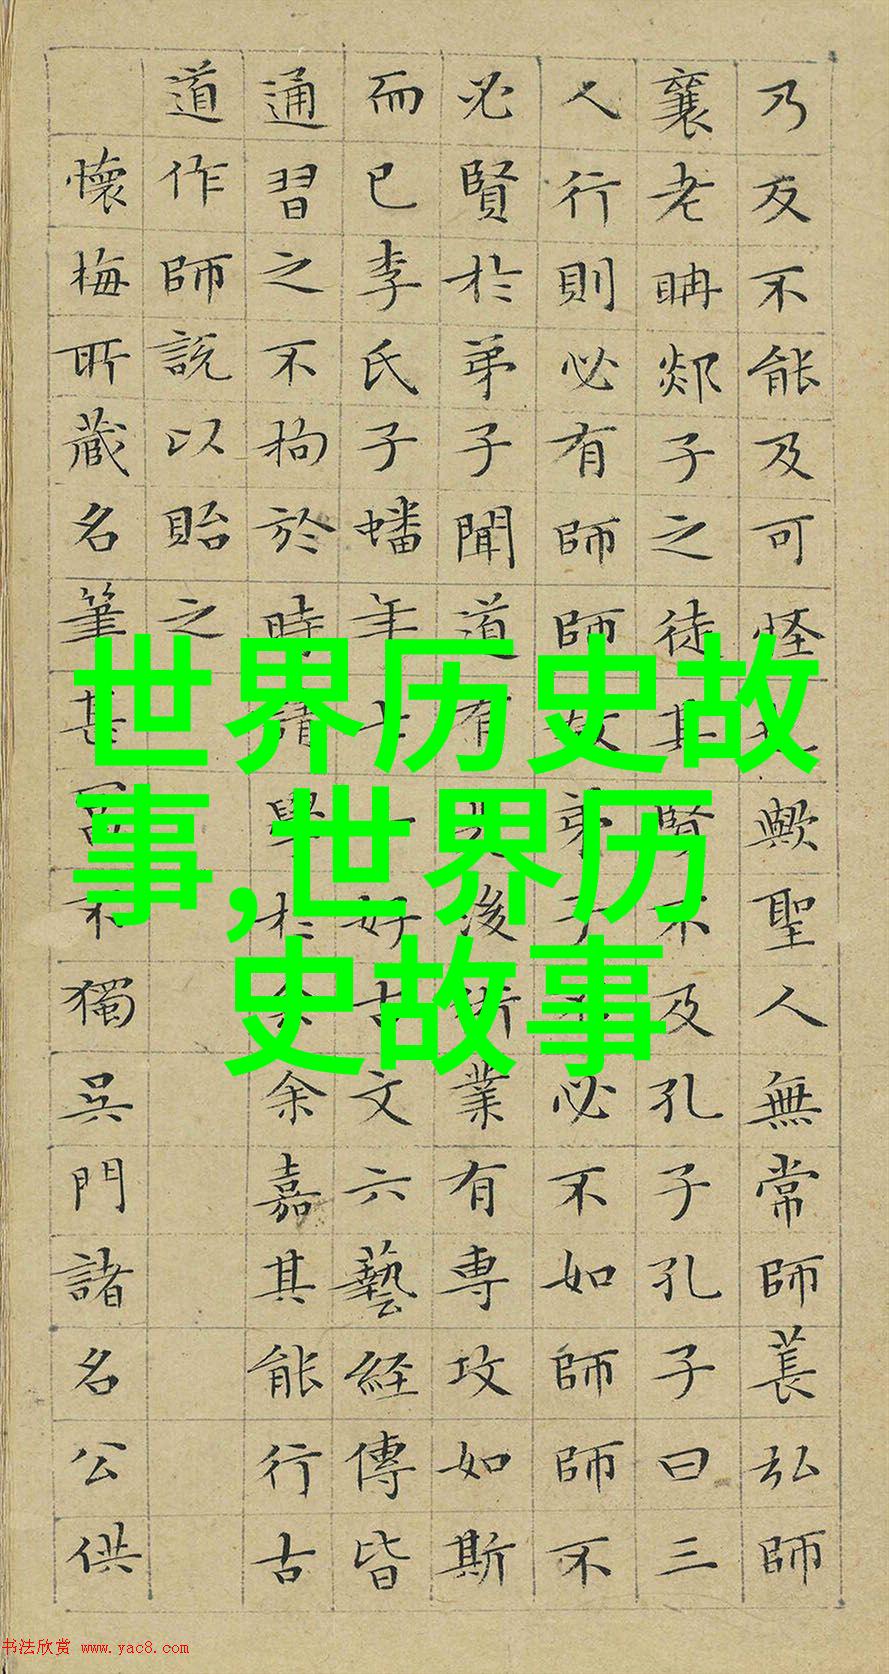 乃反不能及可怪也歟聖人無常師萇弘師
襄老聃郯子之徒其賢不及孔子孔子曰三
人行則必有師師故弟子不必不如師師不
必賢於弟子聞道有先後術業有專攻如斯
而已李氏子蟠年十七好古文六藝経傳皆
通習之不拘於時請學於余余嘉其能行古
道作師說以貽之
懷梅所藏名筆甚富不獨吳門諸名公供
世界历史故
事,世界历
史故事
书法欣赏 www.yac8.com